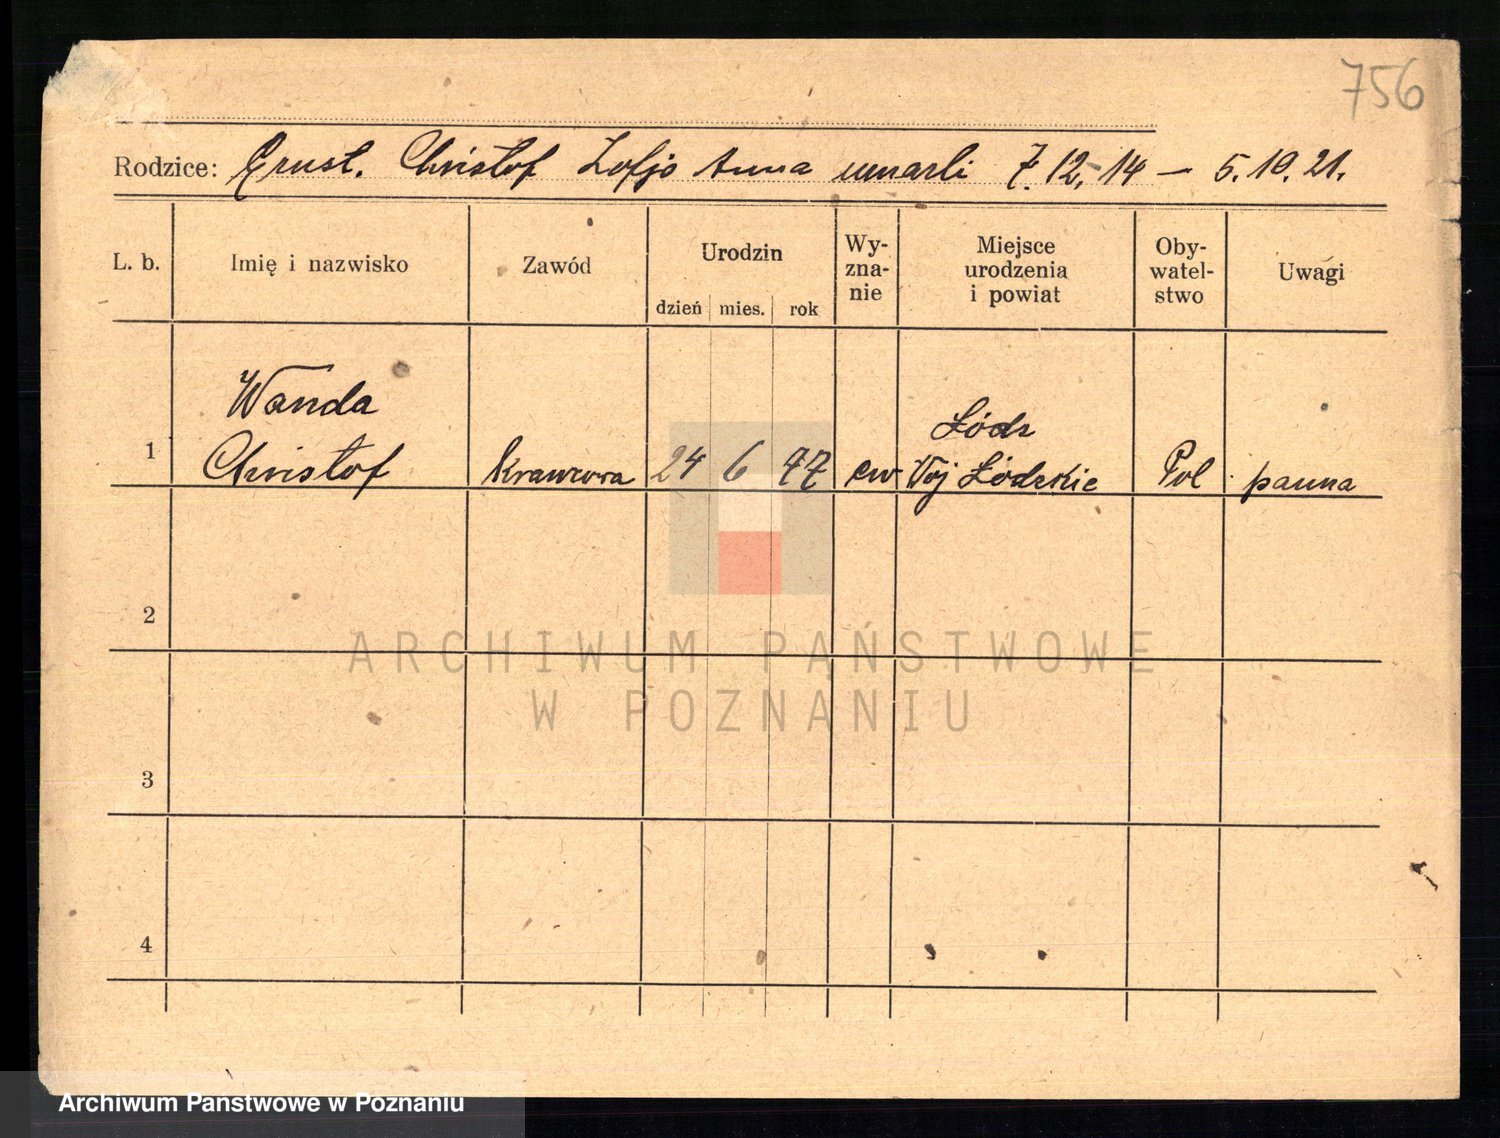 756
Rodzice: Ernst. Christof Zofja Anna umarli 7.12.14 — 5.10.21.
L. b. Imię i nazwisko Zawód Urodzin dzień mies. rok Wy-zna-nie Miejsce urodzenia i powiat Oby-watel-stwo Uwagi
Wanda Łódz
1 Christof Krawcowa 24 6 97 ew Woj Łódzkie Pol panna
2
ARCHIWUM PAŃSTWOWE
W POZNANIU
3
4
Archiwum Państwowe w Poznaniu